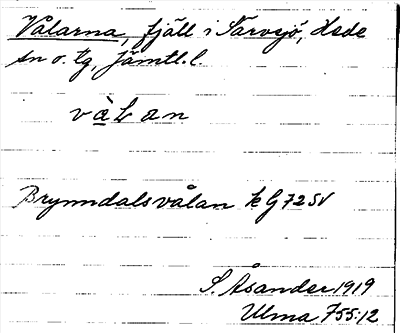 Valarna, fjäll i Särvsjö, Hede
sn o. tg, Jämtl.l.
vàLan
Brynndalsvålan kG72SV
S. Åsander 1919
Ulma 755:12